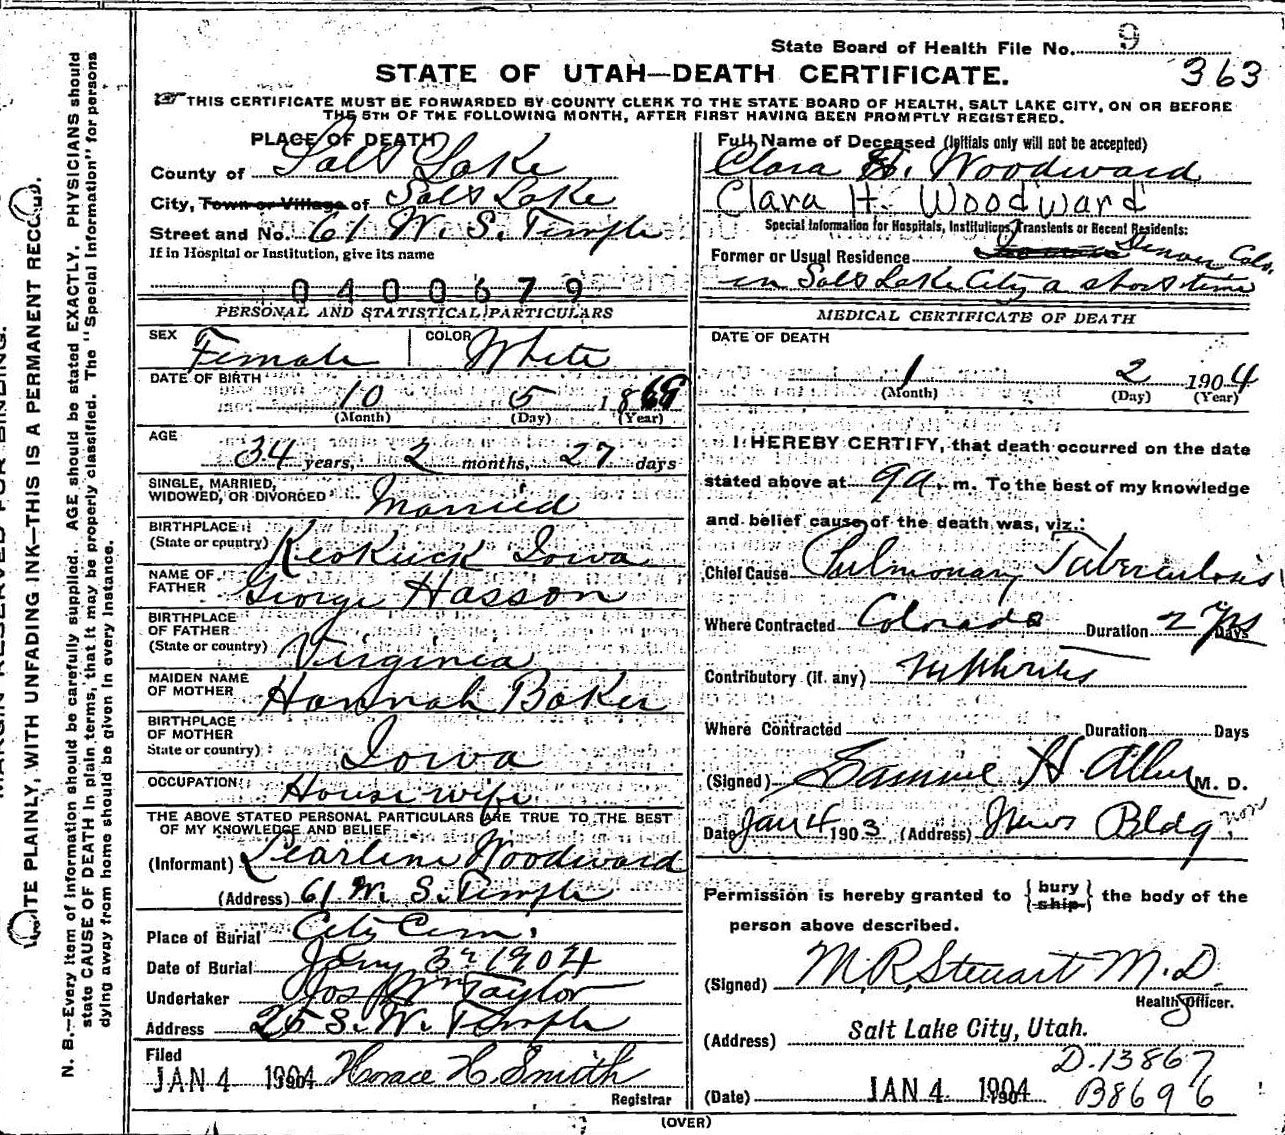 State Board of Health File No. 9
363
STATE OF UTAH—DEATH CERTIFICATE.
THIS CERTIFICATE MUST BE FORWARDED BY COUNTY CLERK TO THE STATE BOARD OF HEALTH, SALT LAKE CITY, ON OR BEFORE
THE 5TH OF THE FOLLOWING MONTH, AFTER FIRST HAVING BEEN PROMPTLY REGISTERED.
PLACE OF DEATH
County of Salt Lake
City, Town or Village of Salt Lake
Street and No. 61 W. S. Temple
If in Hospital or Institution, give its name
0400679
PERSONAL AND STATISTICAL PARTICULARS
SEX Female COLOR White
DATE OF BIRTH
10 5 1869
(Month) (Day) (Year)
AGE
34 years, 2 months, 27 days
SINGLE, MARRIED,
WIDOWED, OR DIVORCED Married
BIRTHPLACE
(State or country) Keokuck Iowa
NAME OF
FATHER George Hasson
BIRTHPLACE
OF FATHER
(State or country) Virginia
MAIDEN NAME
OF MOTHER Hannah Baker
BIRTHPLACE
OF MOTHER
State or country) Iowa
OCCUPATION House wife
THE ABOVE STATED PERSONAL PARTICULARS ARE TRUE TO THE BEST
OF MY KNOWLEDGE AND BELIEF
(Informant) Learline Woodward
(Address) 61 W. S. Temple
Place of Burial City Cem.
Date of Burial Jany 3rd 1904
Undertaker Jos Wm Taylor
Address 25 S. W. Temple
Filed
JAN 4 1904 Horace H. Smith
Registrar
Full Name of Deceased (Initials only will not be accepted)
Clara H. Woodward
Clara H. Woodward
Special Information for Hospitals, Institutions, Transients or Recent Residents:
Former or Usual Residence Denver Colo,
in Salt Lake City a short time
MEDICAL CERTIFICATE OF DEATH
DATE OF DEATH
1 2 1904
(Month) (Day) (Year)
I HEREBY CERTIFY, that death occurred on the date
stated above at 9 a. m. To the best of my knowledge
and belief cause of the death was, viz.:
Chief Cause Pulmonary Tuberculosis
Where Contracted Colorado Duration 2 yrs Days
Contributory (if any) Nephritis
Where Contracted Duration Days
(Signed) Samuel H Allen M. D.
Date Jan 4 1903 (Address) News Bldg
Permission is hereby granted to {bury
ship} the body of the
person above described.
(Signed) M. R. Steuart M.D.
Health Officer.
(Address) Salt Lake City, Utah.
D.13867
(Date) JAN 4 1904 B8696
(OVER)
RESERVED FOR BINDING.
WRITE PLAINLY, WITH UNFADING INK—THIS IS A PERMANENT RECORD.
N. B.—Every item of information should be carefully supplied. AGE should be stated EXACTLY. PHYSICIANS should
state CAUSE OF DEATH in plain terms, that it may be properly classified. The "Special Information" for persons
dying away from home should be given in every instance.